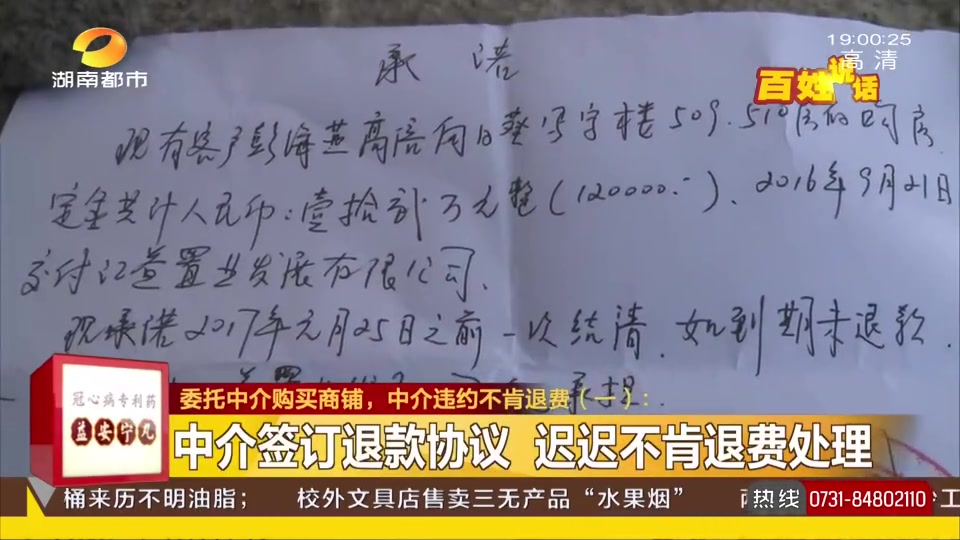 湖南都市
19:00:25
高清
百姓说话
承诺
现有客户彭海燕高倍向日葵写字楼509.510房的购房
定金共计人民币:壹拾贰万元整(120000.-)、2016年9月21日
交付江益置业发展有限公司、
现承诺2017年元月25日之前一次结清.如到期未退款.
承担.
冠心病专利药
益安宁丸
委托中介购买商铺,中介违约不肯退费(一):
中介签订退款协议 迟迟不肯退费处理
桶来历不明油脂; 校外文具店售卖三无产品“水果烟”
热线 0731-84802110
工